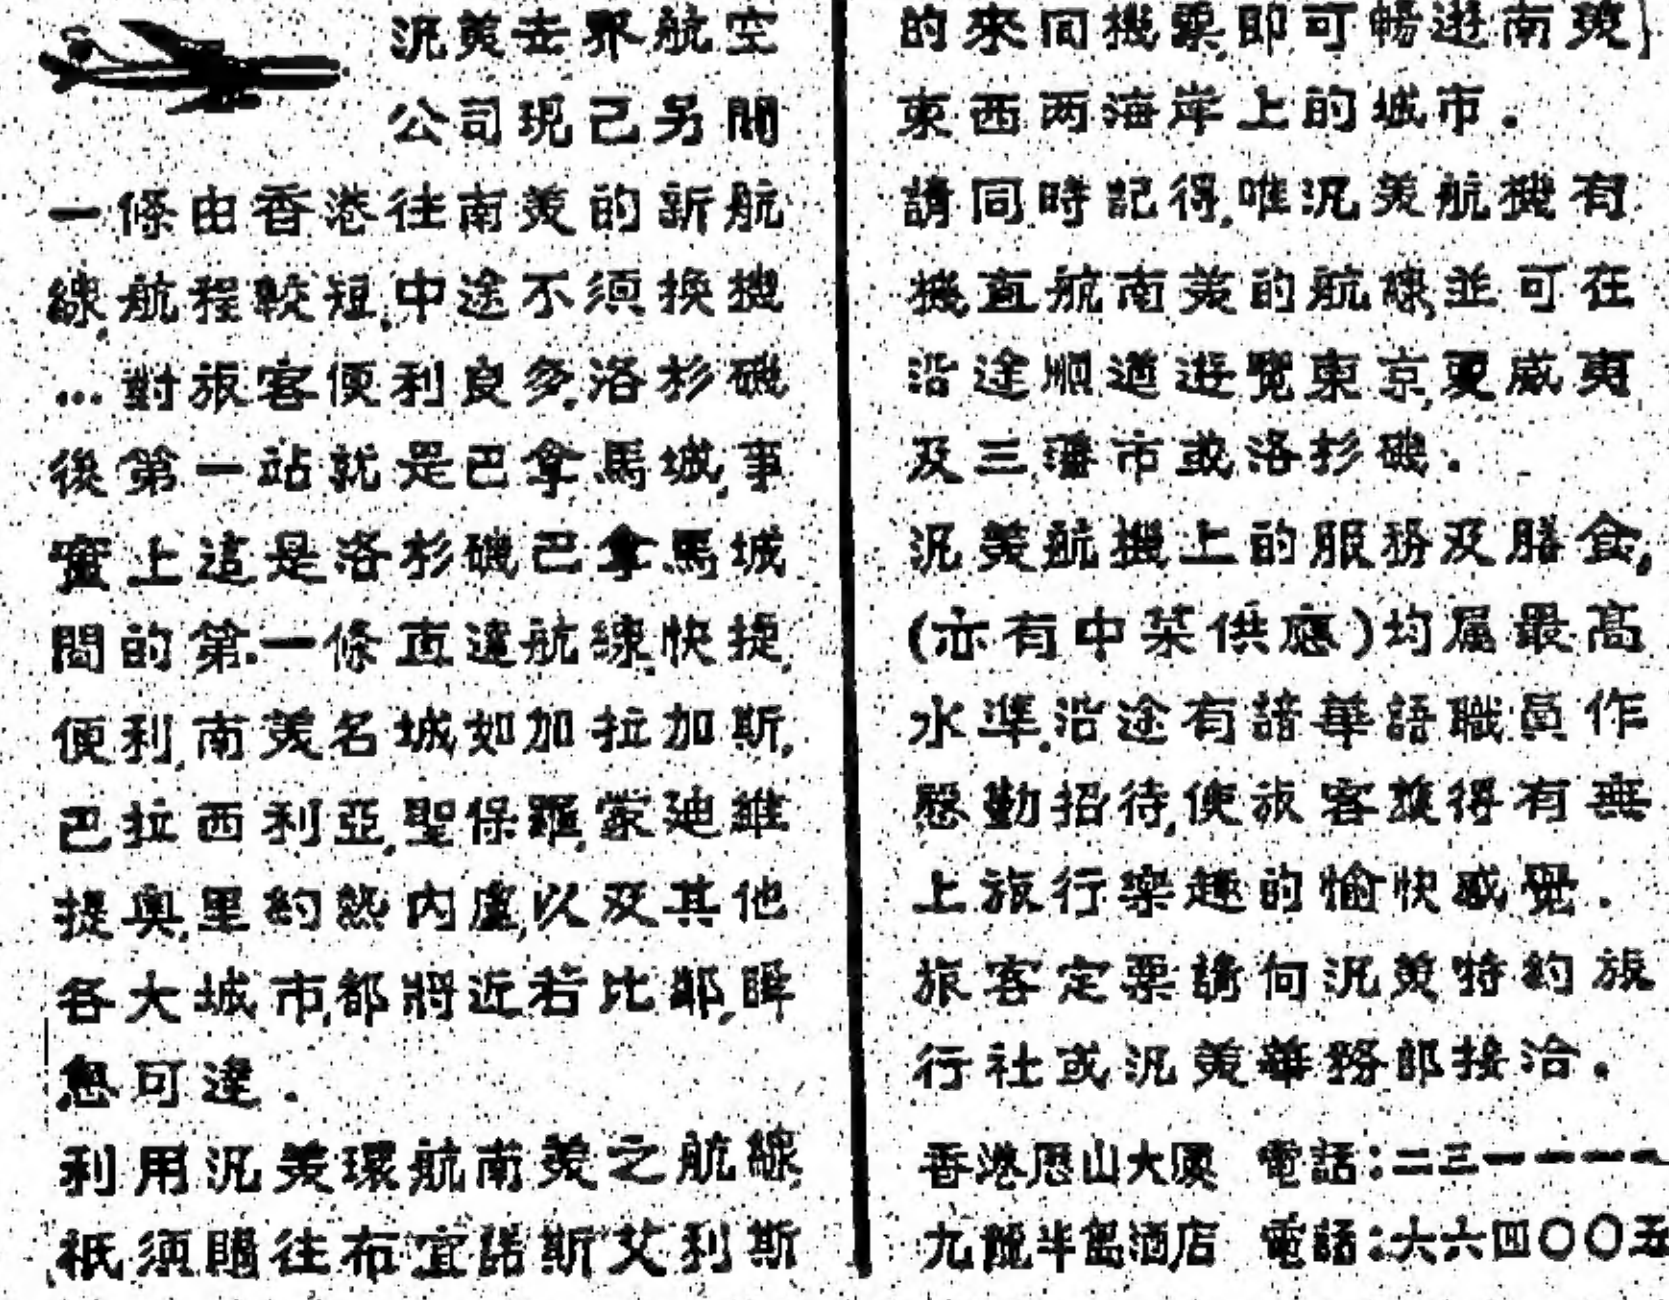 汎美去界航空
公司現已另開
一條由香港往南美的新航
線,航程較短,中途不須換機
…對旅客便利良多,洛杉磯
後第一站就是巴拿馬城,事
實上這是洛杉磯巴拿馬城
間的第一條直達航線,快捷,
便利,南美名城如加拉加斯,
巴拉西利亞,聖保羅,蒙廸維
提奧,里約熱內盧,以及其他
各大城市,都將近若比鄰,瞬
息可達.
利用汎美環航南美之航線
祇須購往布宜諾斯艾利斯
的來回機票,即可暢遊南美
東西两海岸上的城市.
請同時記得,唯汎美航機有
機直航南美的航線,並可在
沿途順道遊覽東京,夏威夷
及三藩市或洛杉磯.
汎美航機上的服務及膳食,
(亦有中菜供應)均屬最高
水準,沿途有諳華語職員作
慇勤招待,使旅客獲得有無
上旅行樂趣的愉快感覺.
旅客定票請向汎美特約旅
行社或汎美華務部接洽.
香港歷山大廈 電話:二三一一一一
九龍半島酒店 電話:六六四〇〇五